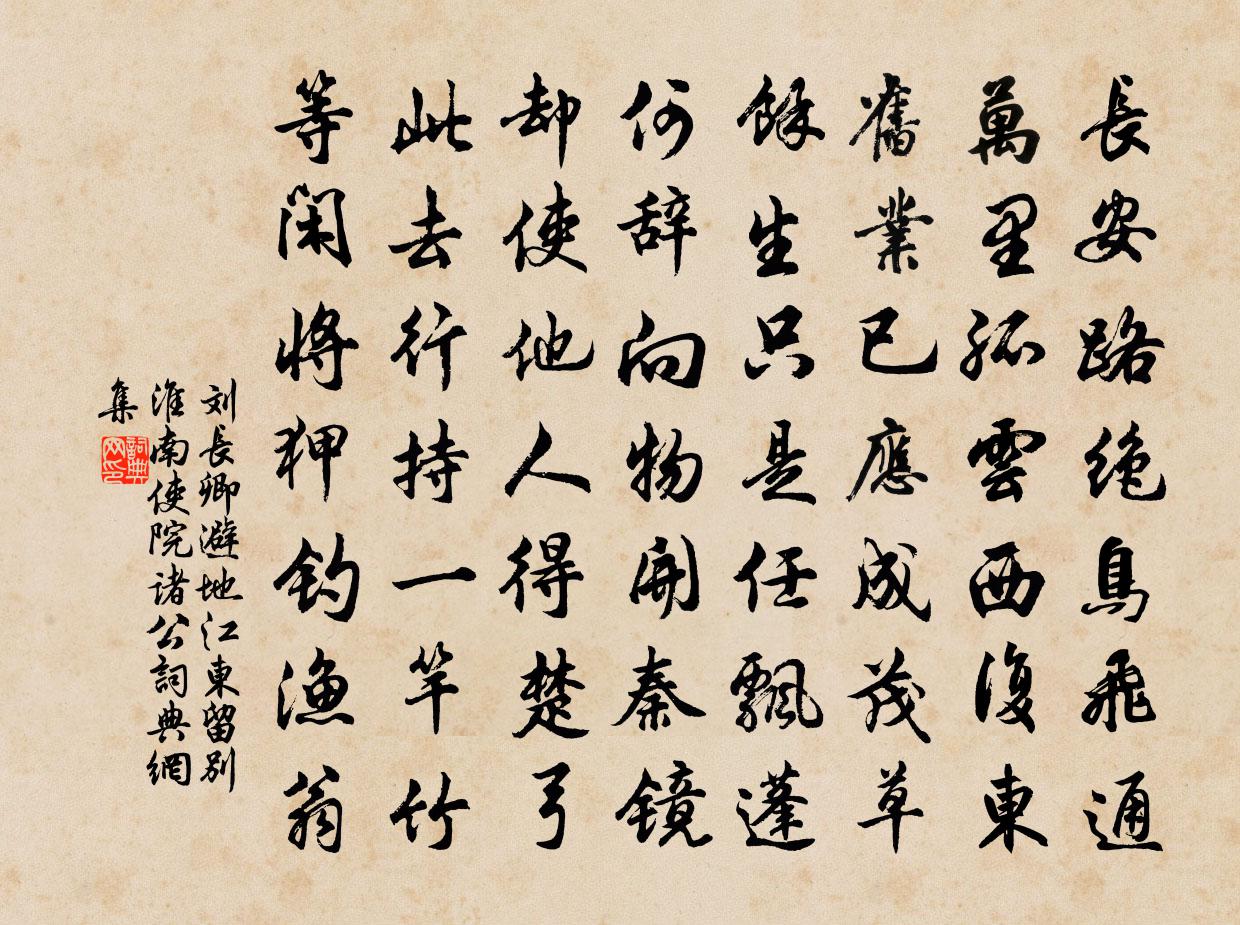 長安路絶鳥飛通
萬里孤雲西復東
舊業已應成茂草
餘生只是任飄蓬
何辞向物開秦鏡
却使他人得楚弓
此去行持一竿竹
等閑將狎釣漁翁
刘長卿避地江東留别
淮南使院诸公詞典網
集
詞典
网印